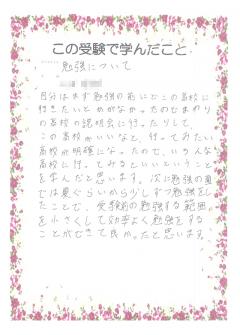 この受験で学んだこと
勉強について
自分はまず勉強の前にどこの高校に
行きたいとかがなかったのでまわり
の高校の説明会に行ったりして、
この高校がいいなと、行ってみたい
高校が明確になったので、いろんな
高校に行ってみるといいということ
を学んだと思います。次に勉強の面
では夏ぐらいから少しずつ勉強をし
たことで、受験前の勉強する範囲
を小さくして効率よく勉強をする
ことができて良かったと思います。